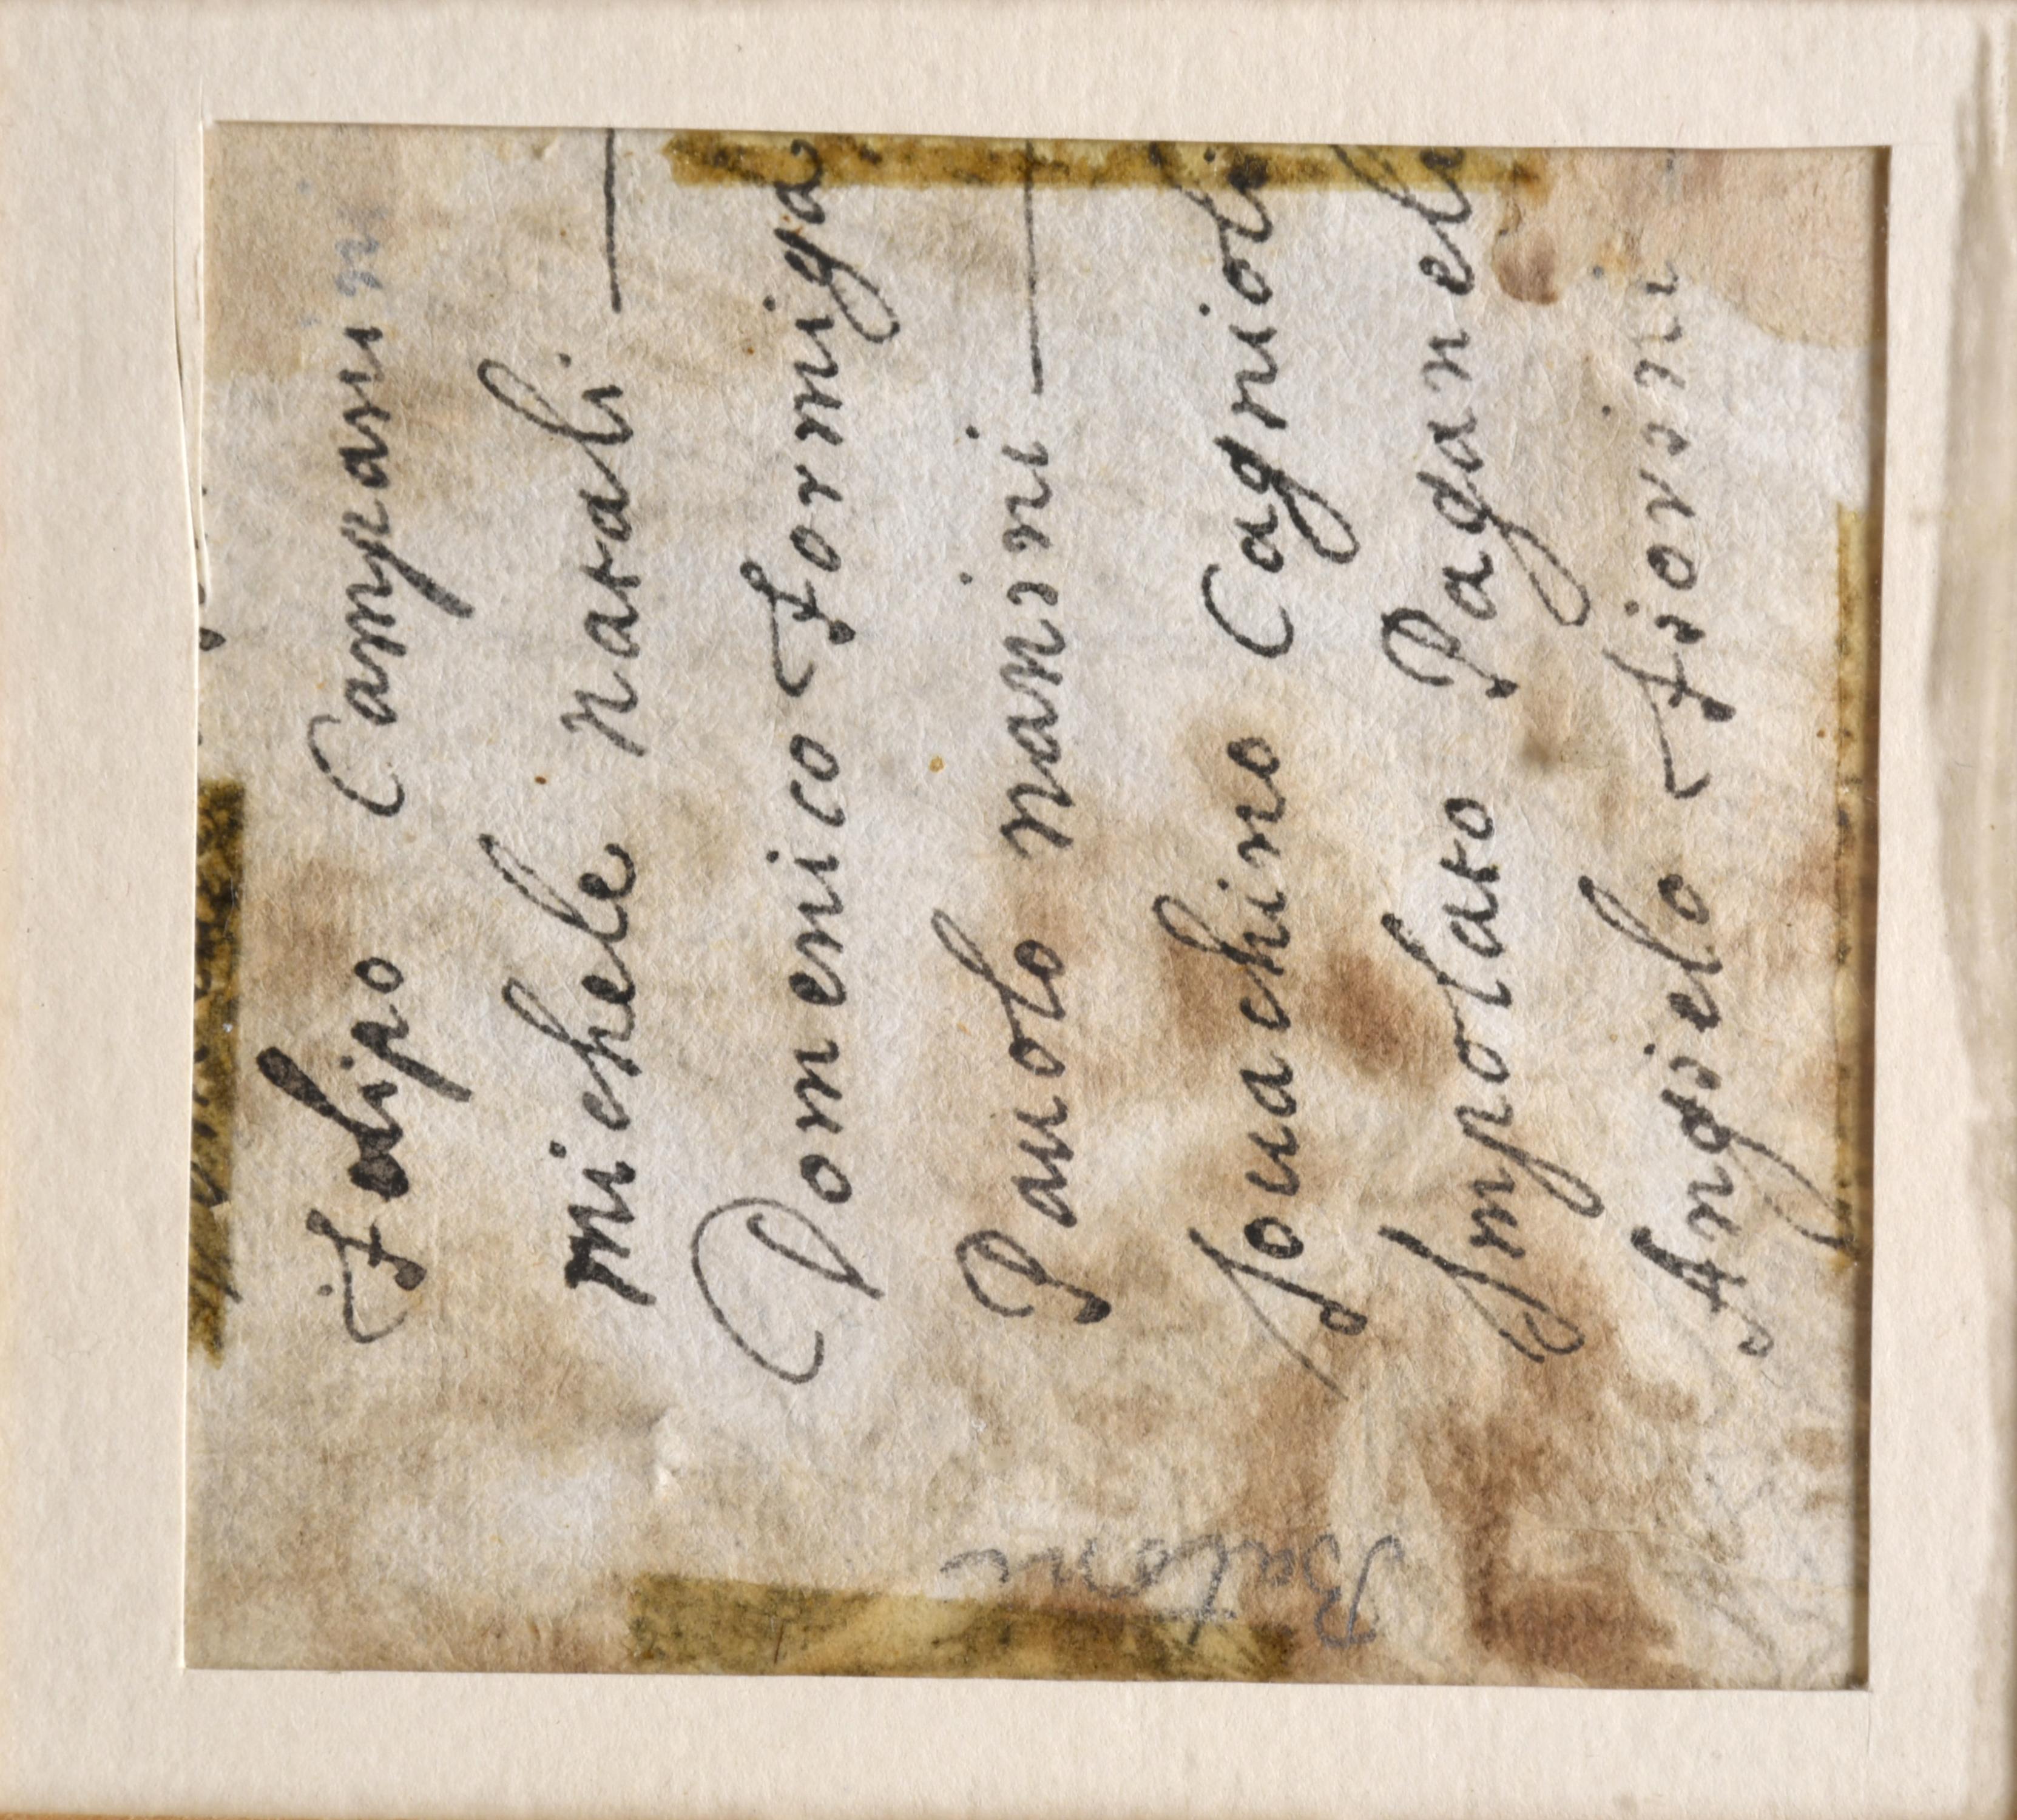 Felipo Campanin
michele natali —
Domenico Formiga
Pauolo nanini —
Jouachino Cagnioli
Impolato Paganeli
Angielo Fiorini
Batoni